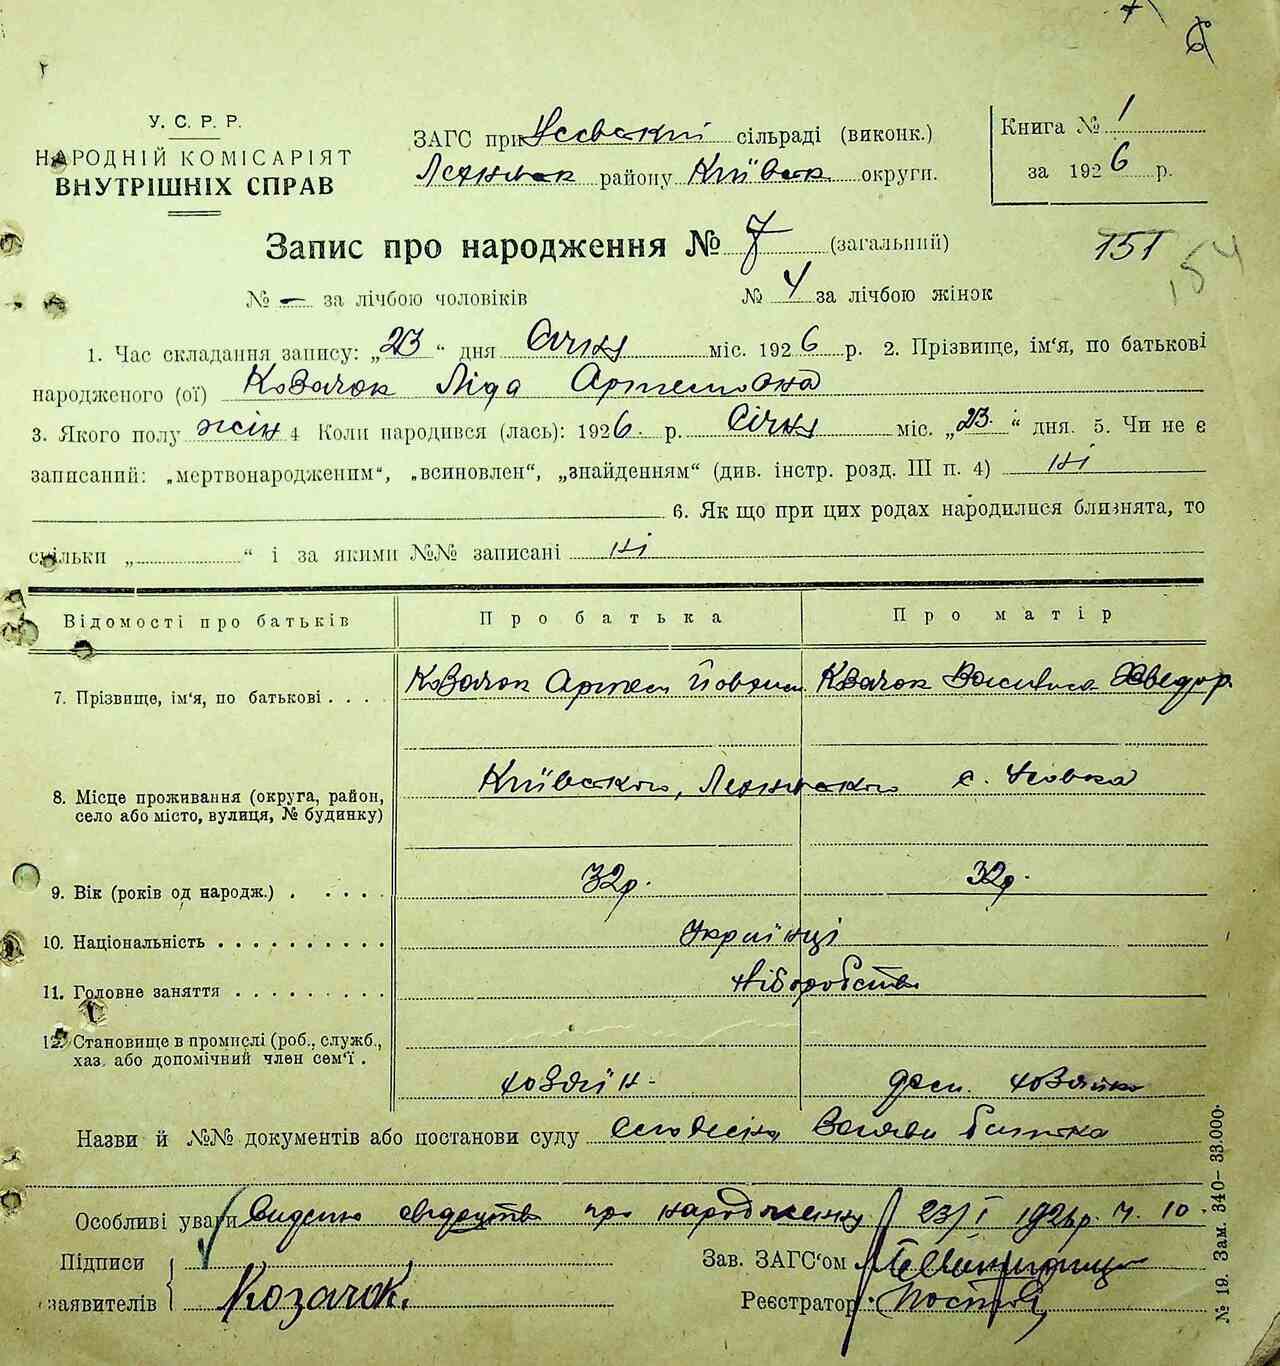 У. С. Р. Р.
НАРОДНІЙ КОМІСАРІЯТ
ВНУТРІШНІХ СПРАВ
ЗАГС при сільраді (виконк.)
району Київськ. округи.
Книга № 1
за 1926 р.
Запис про народження № 7 (загальний)
151
154
№ – за лічбою чоловіків № 4 за лічбою жінок
1. Час складання запису: „23“ дня Січня міс. 1926 р. 2. Прізвище, ім'я, по батькові
народженого (ої) Козачок Ліда Артемовна
3. Якого полу жін 4 Коли народився (лась): 1926. р. Січня міс. „23.“ дня. 5. Чи не є
записаний: „мертвонародженим“, „всиновлен“, „знайденням“ (див. інстр. розд. III п. 4) ні
6. Як що при цих родах народилися близнята, то
скільки „ “ і за якими №№ записані ні
Відомості про батьків Про батька Про матір
7. Прізвище, ім'я, по батькові . . . . Козачок Артем Козачок Хведор.
8. Місце проживання (округа, район,
село або місто, вулиця, № будинку)
Київського, с.
9. Вік (років од народж.) . . . . . 32р. 32р.
10. Національність . . . . . . . . . . Українці
11. Головне заняття . . . . . . . . . хліборобство
12. Становище в промислі (роб., служб.,
хаз. або допомічний член сем'ї .
хозяїн. досп. хозяйка
Назви й №№ документів або постанови суду заяви батька
Особливі уваги Видано свідоцтво про народження 23/I 1926р. ч. 10.
Підписи
заявителів
Козачок.
Зав. ЗАГС'ом
Реєстратор
№ 19. Зам. 340–33.000.